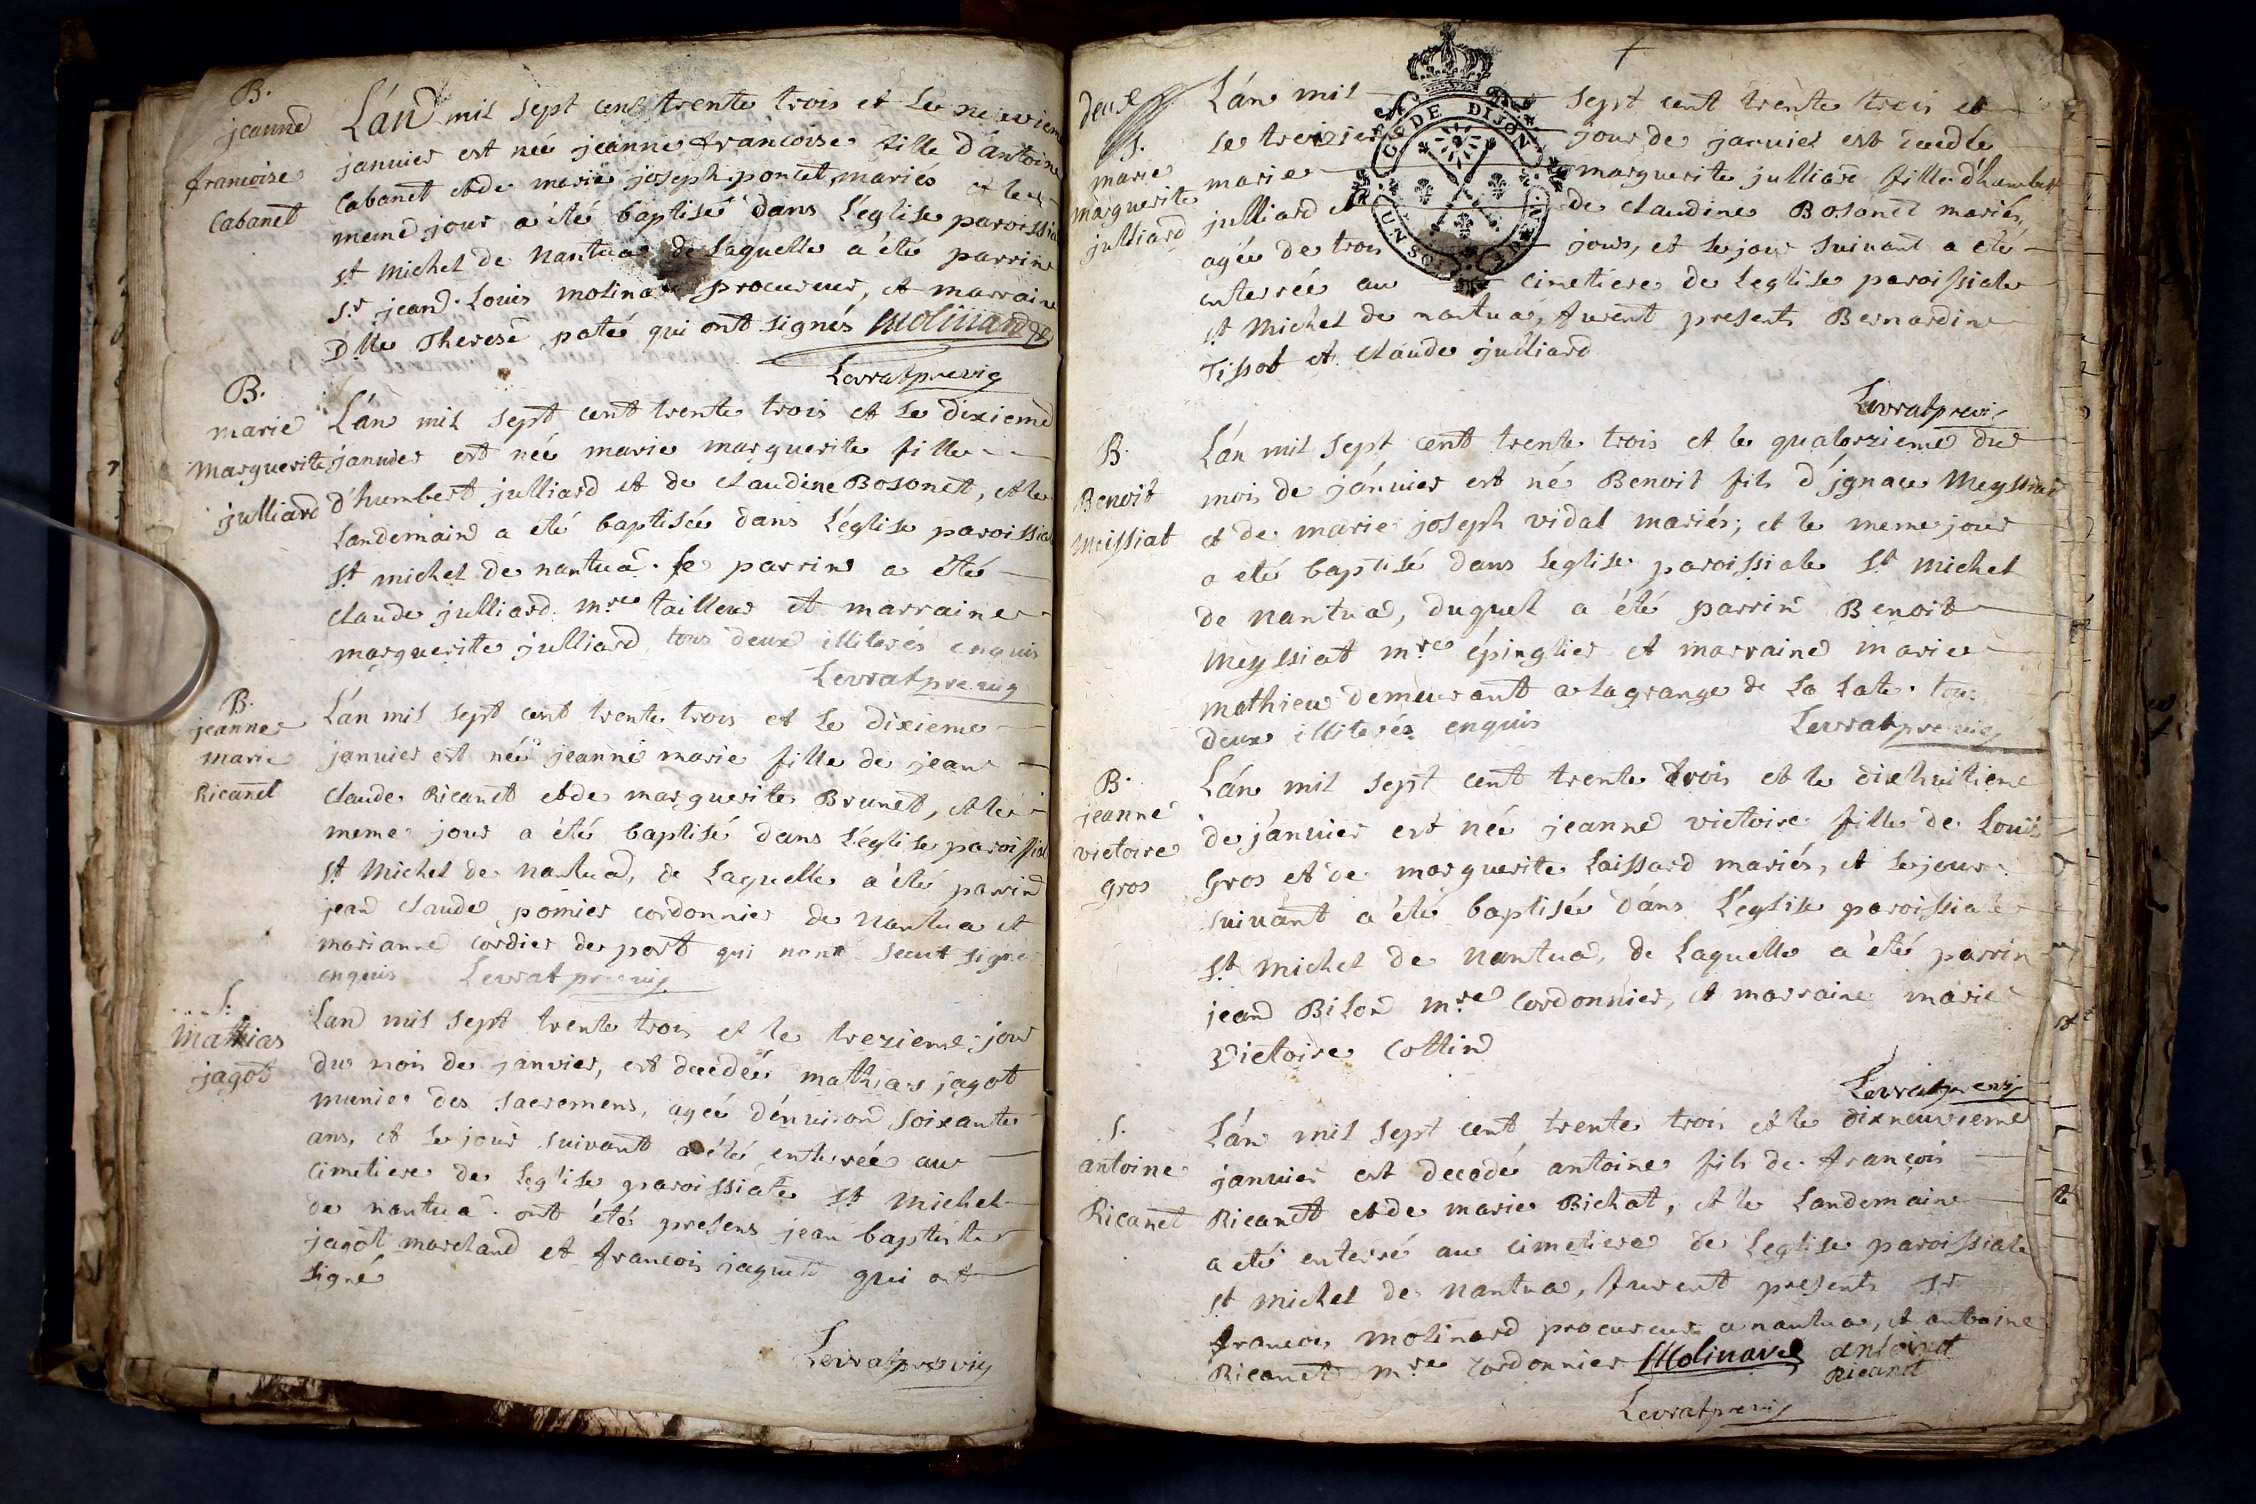 B.
jeanne
francoise
Cabanet
L'an mil sept cent trente trois et le neuvieme
januier est née jeanne francoise fille d'antoine
Cabanet et de marie joseph poncet mariés et le
meme jour a été baptisé dans l'église paroissia
st michel de nantua de laquelle a été parrin
sr jean Louis molinard procureur, et marraine
Dlle Therese paté qui ont signés Molinard
Levrat previg
B.
marie
marguerite
julliard
L'an mil sept cent trente trois et le dixieme
januier est née marie marguerite fille
d'humbert julliard et de claudine Bosonet, et le
landemain a eté baptisée dans l'église paroissial
st michel de nantua. le parrin a été
claude julliard mre tailleur et marraine
marguerite julliard tous deux illiterés enquis
Levrat previg
B.
jeanne
marie
Ricanet
L'an mil sept cent trente trois et le dixieme
januier est née jeanne marie fille de jean
claude Ricanet et de marguerite Brunet, et le
meme jour a été baptisé dans l'église paroissial
st Michel de nantua, de laquelle a été parrin
jean claude pomier cordonnier de nantua et
marianne cordier de port qui nont sceut signé
enquis Levrat previg
S.
Mathias
jagot
Lan mil sept trente trois et le trezieme jour
du mois de janvier, est decedée mathias jagot
munie des sacremens, agée d'énuiron soixante
ans, et le jour suivant a été enterrée au
cimetiere de leglise paroissiale st Michel
de nantua. ont été presens jean baptiste
jagot marchand et francois jaquet qui ont
signé
Levrat previg
deux
S.
marie
marguerite
julliard
L'an mil sept cent trente trois et
le treizieme jour de januier est decedée
marie marguerite julliard fille d'humbert
julliard et de claudine Bosonet mariés,
agée de trois jours, et le jour suivant a eté
enterrée au cimetiere de leglise paroissiale
st Michel de nantua, furent presents Bernardin
Tissot et claude julliard
Levrat previg
C. DE DIJON
B.
Benoit
Meissiat
L'an mil sept cent trente trois et le quatorzieme du
mois de januier est né Benoit fils d'jgnace Meyssiat
et de marie joseph vidal mariés; et le meme jour
a eté baptisé dans leglise paroissiale st Michel
de nantua, duquel a été parrin Benoit
Meyssiat mre épinglier et marraine marie
mathieu demeurant a lagrange de la late. tous
deux illiterés enquis Levrat previg
B.
jeanne
victoire
gros
L'an mil sept cent trente trois et le dixhuitieme
de januier est née jeanne victoire fille de Louis
gros et de marguerite Laissard mariés, et le jour
suivant a été baptisée dans l'église paroissiale
st Michel de nantua, de laquelle a été parrin
jean Bilon mre Cordonnier, et marraine marie
victoire Cottin
Levrat previg
S.
antoine
Ricanet
L'an mil sept cent trente trois et le dixneuvieme
januier est decedé antoine fils de françois
Ricanet et de marie Bichat, et le landemain
a eté enterré au cimetiere de leglise paroissiale
st Michel de nantua, furent presents sr
francois molinard procureur a nantua, et antoine
Ricanet mre cordonnier Molinard antoine
Ricanet
Levrat previg